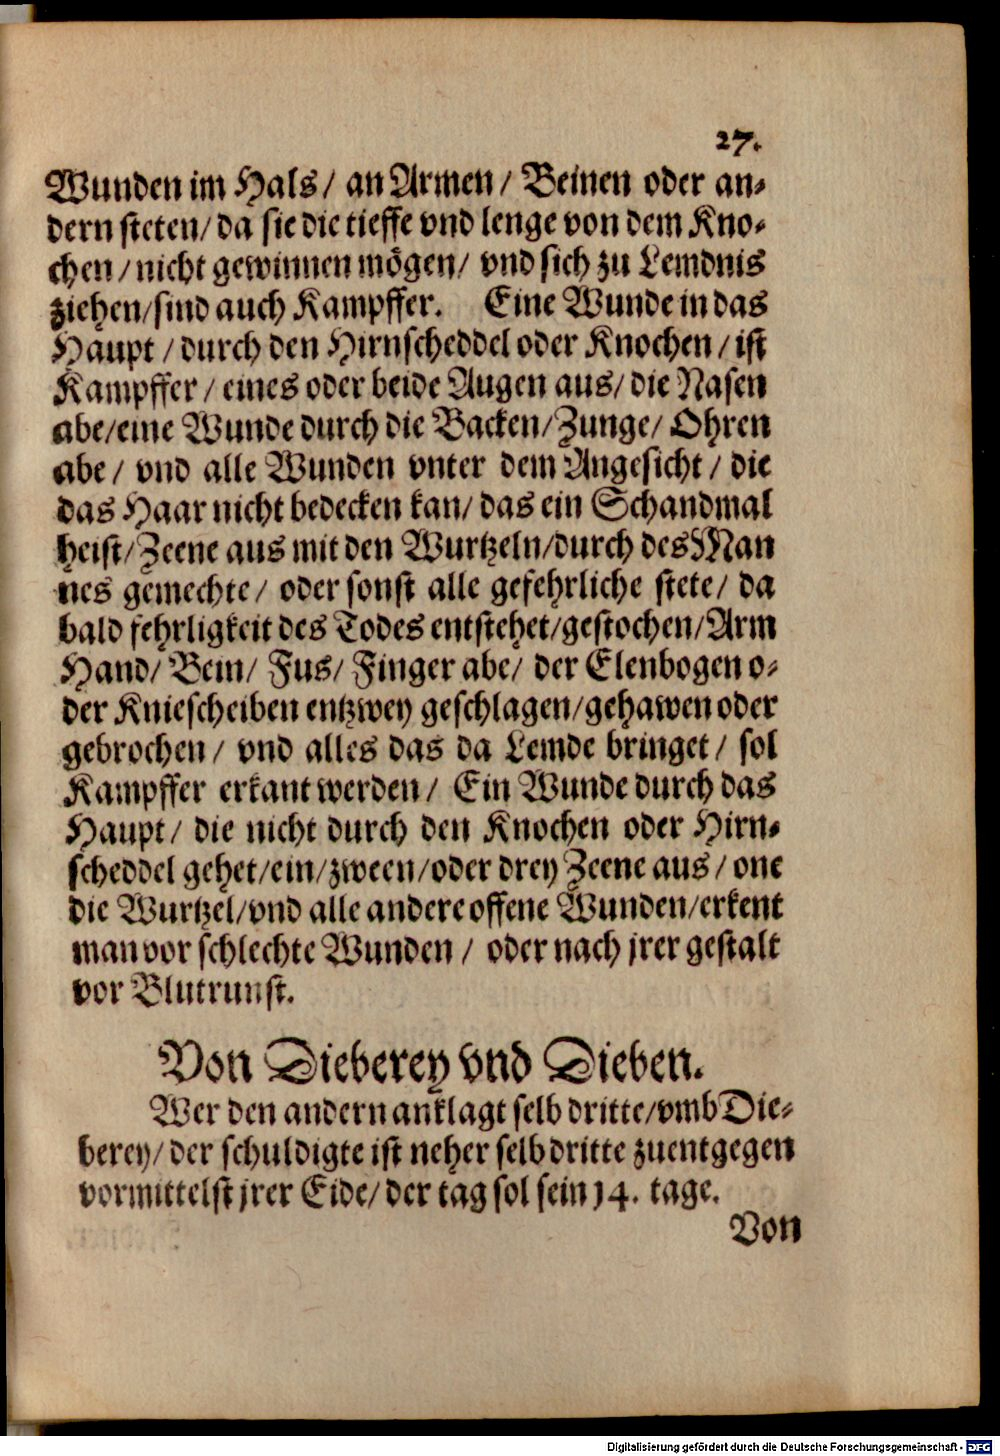 27.
Wunden im Hals/ an Armen/ Beinen oder an-
dern steten/ da sie die tieffe vnd lenge von dem Kno-
chen/ nicht gewinnen mögen/ vnd sich zu Lemdnis
ziehen/ sind auch Kampffer. Eine Wunde in das
Haupt/ durch den Hirnscheddel oder Knochen/ ist
Kampffer/ eines oder beide Augen aus/ die Nasen
abe/ eine Wunde durch die Backen/ Zunge/ Ohren
abe/ vnd alle Wunden vnter dem Angesicht/ die
das Haar nicht bedecken kan/ das ein Schandmal
heist/ Zeene aus mit den Wurtzeln/ durch des Man
nes gemechte/ oder sonst alle gefehrliche stete/ da
bald fehrligkeit des Todes entstehet/ gestochen/ Arm
Hand/ Bein/ Fus/ Finger abe/ der Elenbogen o-
der Kniescheiben entzwey geschlagen/ gehawen oder
gebrochen/ vnd alles das da Lemde bringet/ sol
Kampffer erkant werden/ Ein Wunde durch das
Haupt/ die nicht durch den Knochen oder Hirn-
scheddel gehet/ ein/ zween/ oder drey Zeene aus/ one
die Wurtzel/ vnd alle andere offene Wunden/ erkent
man vor schlechte Wunden/ oder nach jrer gestalt
vor Blutrunst.
Von Dieberey vnd Dieben.
Wer den andern anklagt selb dritte/ vmb Die-
berey/ der schuldigte ist neher selb dritte zuentgegen
vormittelst jrer Eide/ der tag sol sein 14. tage.
Von
Digitalisierung gefördert durch die Deutsche Forschungsgemeinschaft - DFG